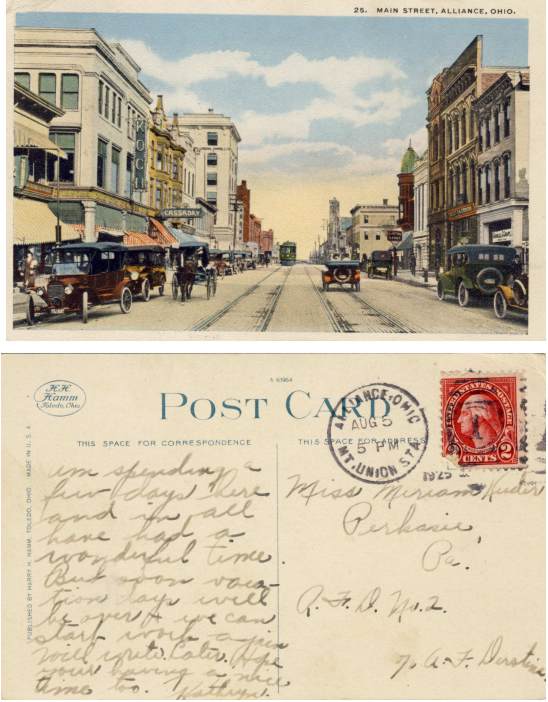 25. MAIN STREET, ALLIANCE, OHIO.
CASSADAY
H.H.
Hamm
Toledo, Ohio
A 93954
POST CARD
THIS SPACE FOR CORRESPONDENCE
THIS SPACE FOR ADDRESS
PUBLISHED BY HARRY H. HAMM, TOLEDO, OHIO. MADE IN U.S.A.
ALLIANCE, OHIO
AUG 5
5 PM
1925
MT. UNION STA.
UNITED STATES POSTAGE
2 CENTS 2
um spending a
few days here
and in all
have had a
wonderful time
But soon vaca-
tion days will
be over & we can
start work again
Will write later. Hope
your having a nice
time too. Kathryn.
Miss Meriam Kuder
Perkasie
Pa.
R. F. D. No. 2.
% A. F. Derstine